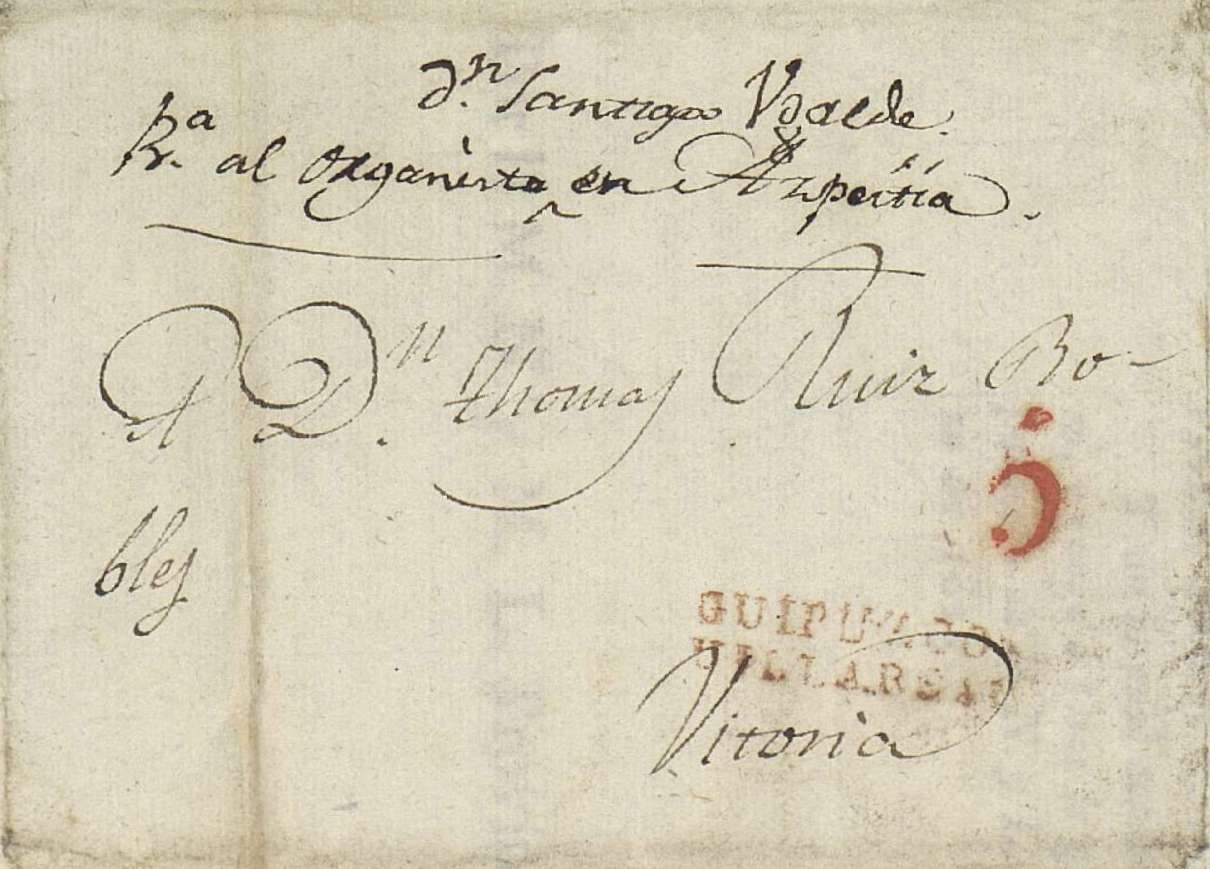 Dn. Santiago Vgalde.
Ra. al Organista en Azpeitia.
A Dn. Thomas Ruiz Ro-
bles
5
GUIPUZCOA
VILLAREAL
Vitoria